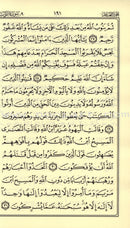 ١٩١
ثُمَّ يَتُوبُ اللَّهُ مِنْ بَعْدِ ذَٰلِكَ عَلَىٰ مَنْ يَشَاءُ وَاللَّهُ غَفُورٌ
رَحِيمٌ يَا أَيُّهَا الَّذِينَ آمَنُوا إِنَّمَا الْمُشْرِكُونَ
نَجَسٌ فَلَا يَقْرَبُوا الْمَسْجِدَ الْحَرَامَ بَعْدَ عَامِهِمْ هَٰذَا
وَإِنْ خِفْتُمْ عَيْلَةً فَسَوْفَ يُغْنِيكُمُ اللَّهُ مِنْ فَضْلِهِ
إِنْ شَاءَ إِنَّ اللَّهَ عَلِيمٌ حَكِيمٌ
قَاتِلُوا الَّذِينَ لَا يُؤْمِنُونَ بِاللَّهِ وَلَا بِالْيَوْمِ الْآخِرِ
وَلَا يُحَرِّمُونَ مَا حَرَّمَ اللَّهُ وَرَسُولُهُ وَلَا يَدِينُونَ
دِينَ الْحَقِّ مِنَ الَّذِينَ أُوتُوا الْكِتَابَ حَتَّىٰ يُعْطُوا الْجِزْيَةَ عَنْ يَدٍ
وَهُمْ صَاغِرُونَ وَقَالَتِ الْيَهُودُ عُزَيْرٌ ابْنُ اللَّهِ
وَقَالَتِ النَّصَارَى الْمَسِيحُ ابْنُ اللَّهِ ذَٰلِكَ قَوْلُهُمْ بِأَفْوَاهِهِمْ
يُضَاهِئُونَ قَوْلَ الَّذِينَ كَفَرُوا مِنْ قَبْلُ قَاتَلَهُمُ اللَّهُ
أَنَّىٰ يُؤْفَكُونَ اتَّخَذُوا أَحْبَارَهُمْ وَرُهْبَانَهُمْ
أَرْبَابًا مِنْ دُونِ اللَّهِ وَالْمَسِيحَ ابْنَ مَرْيَمَ
وَمَا أُمِرُوا إِلَّا لِيَعْبُدُوا إِلَٰهًا وَاحِدًا
لَا إِلَٰهَ إِلَّا هُوَ سُبْحَانَهُ عَمَّا يُشْرِكُونَ